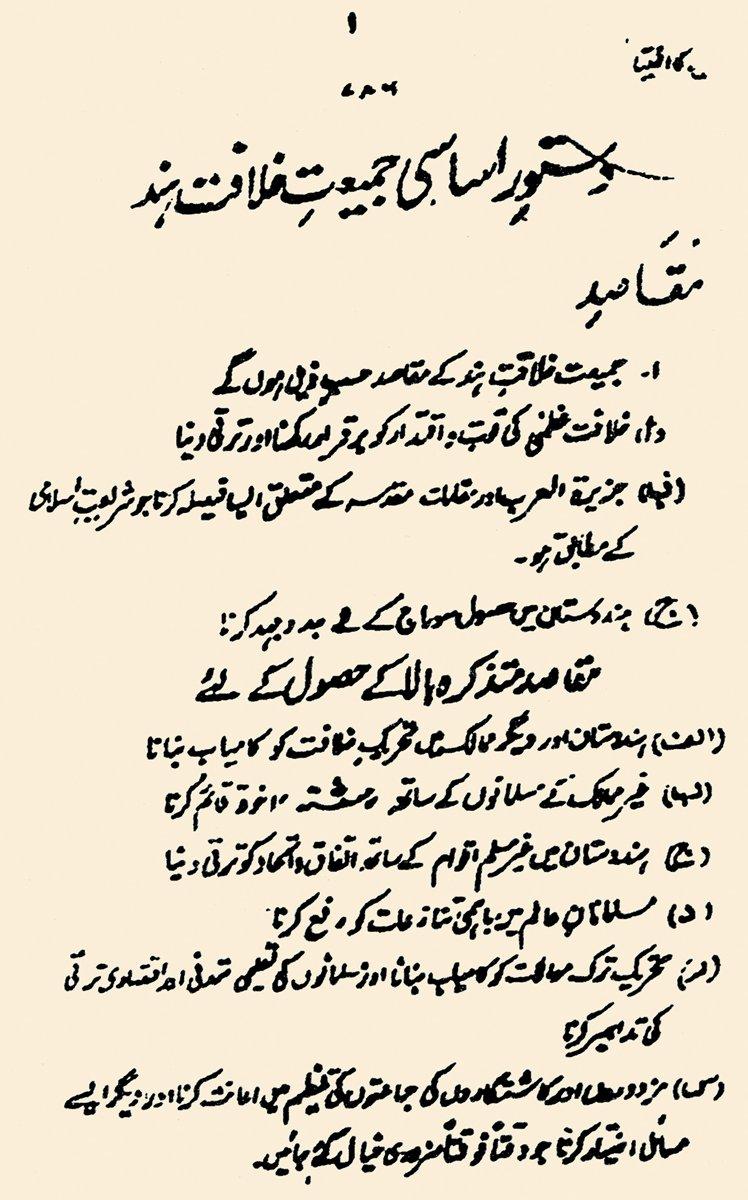 ۱
۷۸۶
دستورِ اساسی جمیعتِ خلافت ہند
مقاصد
۱۔ جمیعت خلافتِ ہند کے مقاصد حسبِ ذیل ہوں گے
خلافت عظمیٰ کی قوت و اقتدار کو برقرار رکھنا اور ترقی دینا
(ب) جزیرۃ العرب اور مقامات مقدسہ کے متعلق ایسا فیصلہ کرنا جو شریعتِ اسلامی
کے مطابق ہو۔
(ج) ہندوستان میں حصول سوراج کے لئے جدوجہد کرنا
مقاصد متذکرہ بالا کے حصول کے لئے
(الف) ہندوستان اور دیگر ممالک میں تحریکِ خلافت کو کامیاب بنانا
(ب) غیر ممالک کے مسلمانوں کے ساتھ رشتہ اخوۃ قائم کرنا
(ج) ہندوستان میں غیر مسلم اقوام کے ساتھ اتفاق و اتحاد کو ترقی دینا
(د) مسلمانانِ عالم میں باہمی تنازعات کو رفع کرنا
(ر) تحریک ترک موالات کو کامیاب بنانا اور مسلمانوں کی تعلیمی تمدنی اور اقتصادی ترقی
کی تدابیر کرنا
(س) مزدوروں اور کاشتکاروں کی جماعتوں کی تنظیم میں اعانت کرنا اور دیگر ایسے
مسائل اختیار کرنا جو وقتاً فوقتاً ضروری خیال کئے جائیں۔